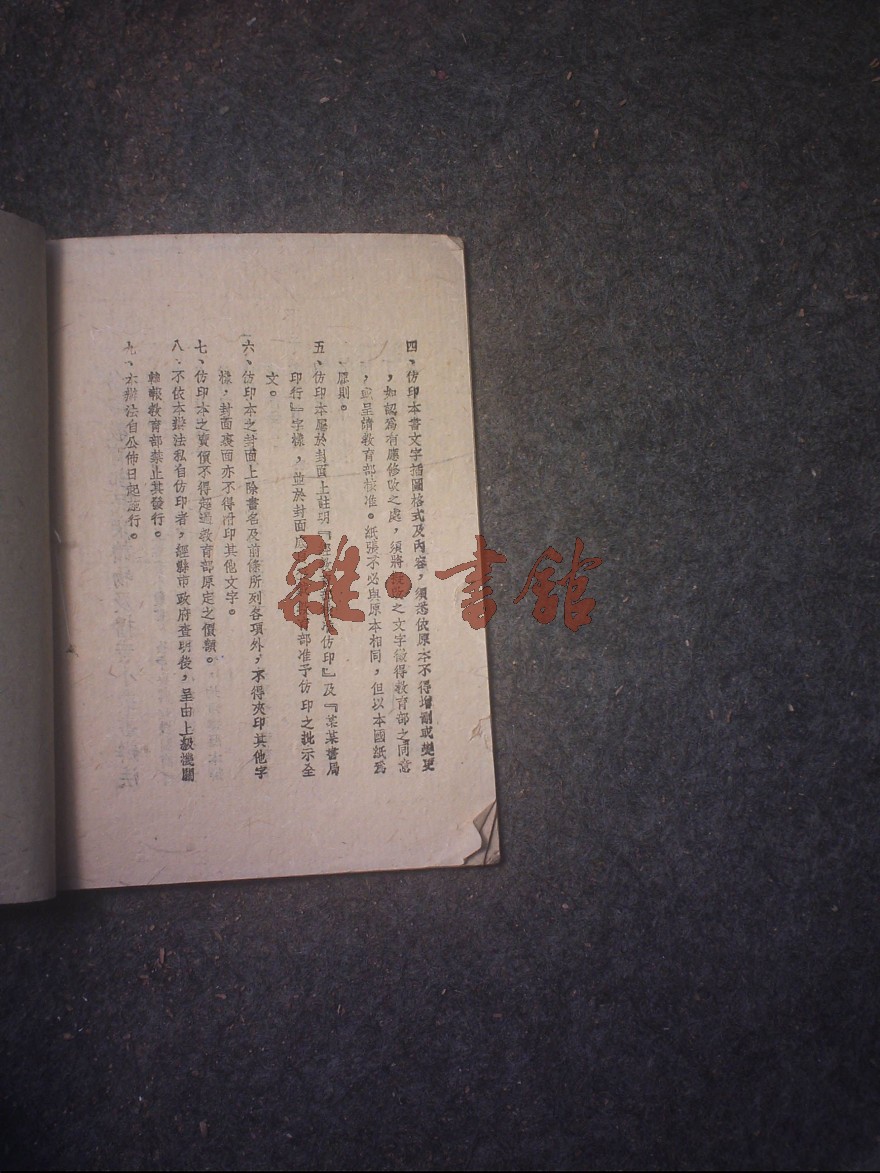 四、仿印本書文字插圖格式及內容，須悉依原本不得增刪或變更
，如認爲有應修改之處，須將之文字徵得教育部之同意
，或呈請教育部核准。紙張不必與原本相同，但以本國紙爲
原則。
五、仿印本應於封面上註明『仿印』及『某某書局
印行』字樣，並於封面育部准予仿印之批示全
文。
六、仿印本之封面上除書名及前條所列各項外，不得夾印其他字
樣，封面裏面亦不得附印其他文字。
七、仿印本之賣價不得超過教育部原定之價額。
八、不依本辦法私自仿印者，經縣市政府查明後，呈由上級機關
轉報教育部禁止其發行。
九、本辦法自公佈日起施行。
雜·書館